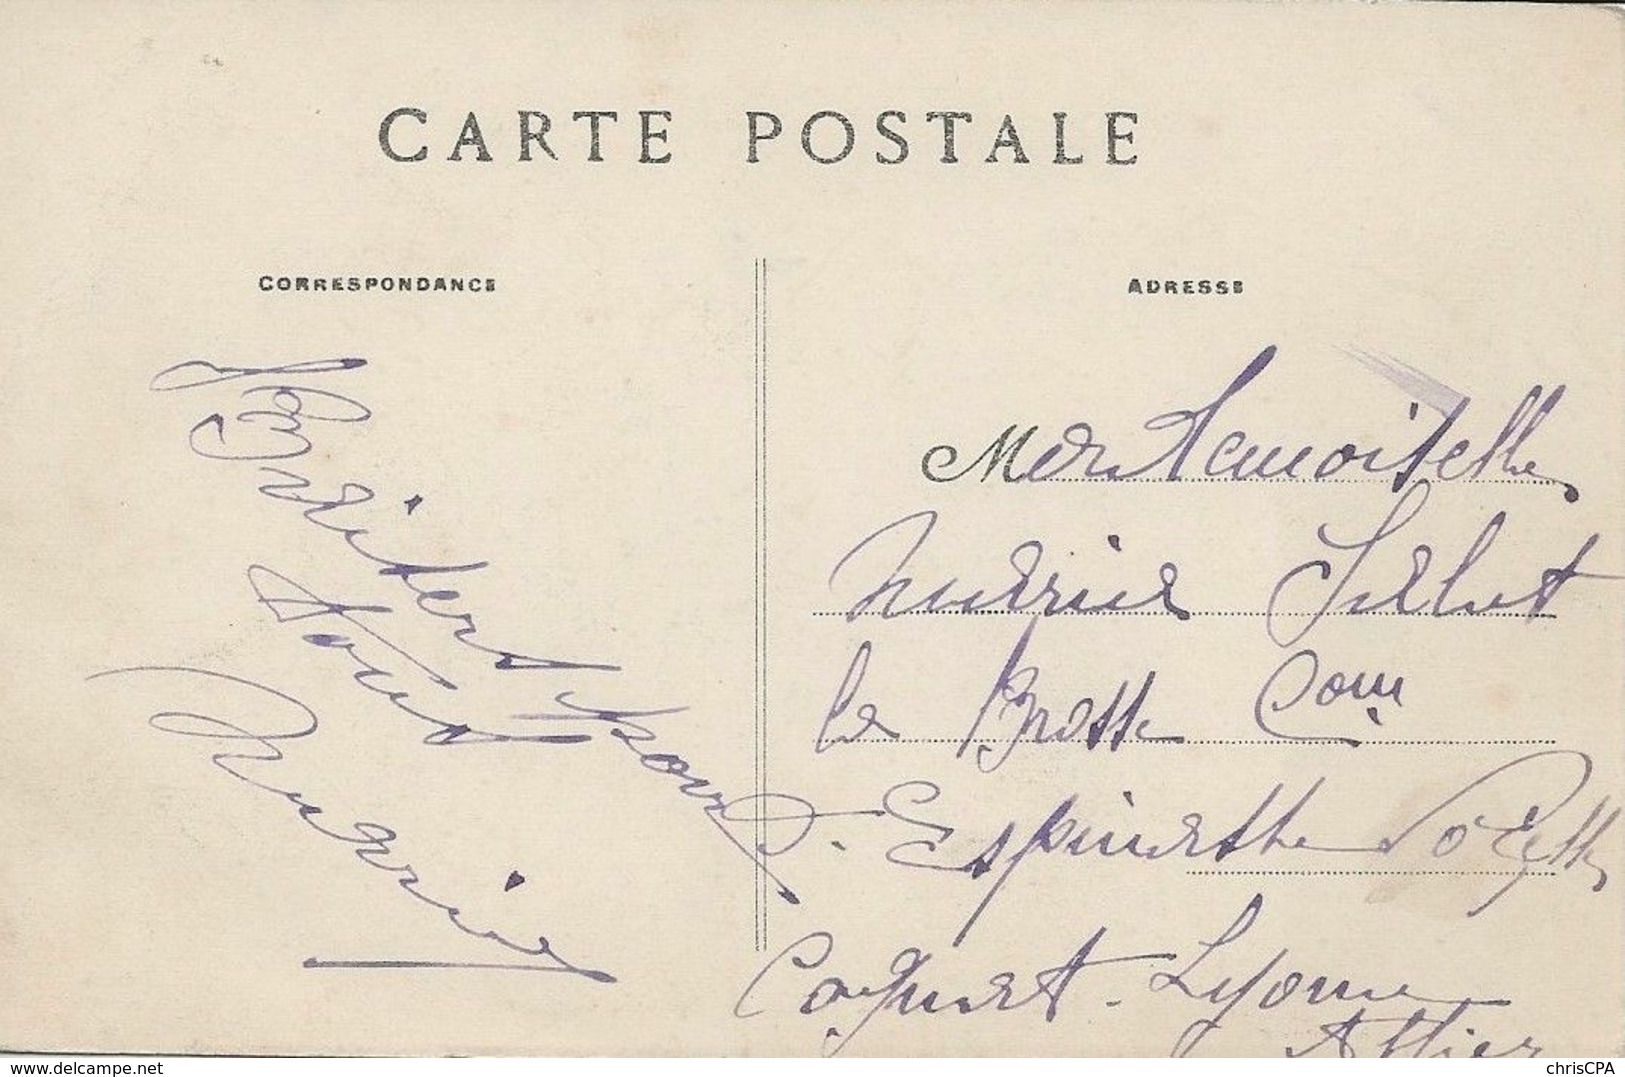 CARTE POSTALE
CORRESPONDANCE
ADRESSE
Baisers pour
tous
Maria
Mademoiselle
Maria
la Brosse Cne
Espinasse Vozelle
Cognat-Lyonne
Allier
delcampe.net
chrisCPA